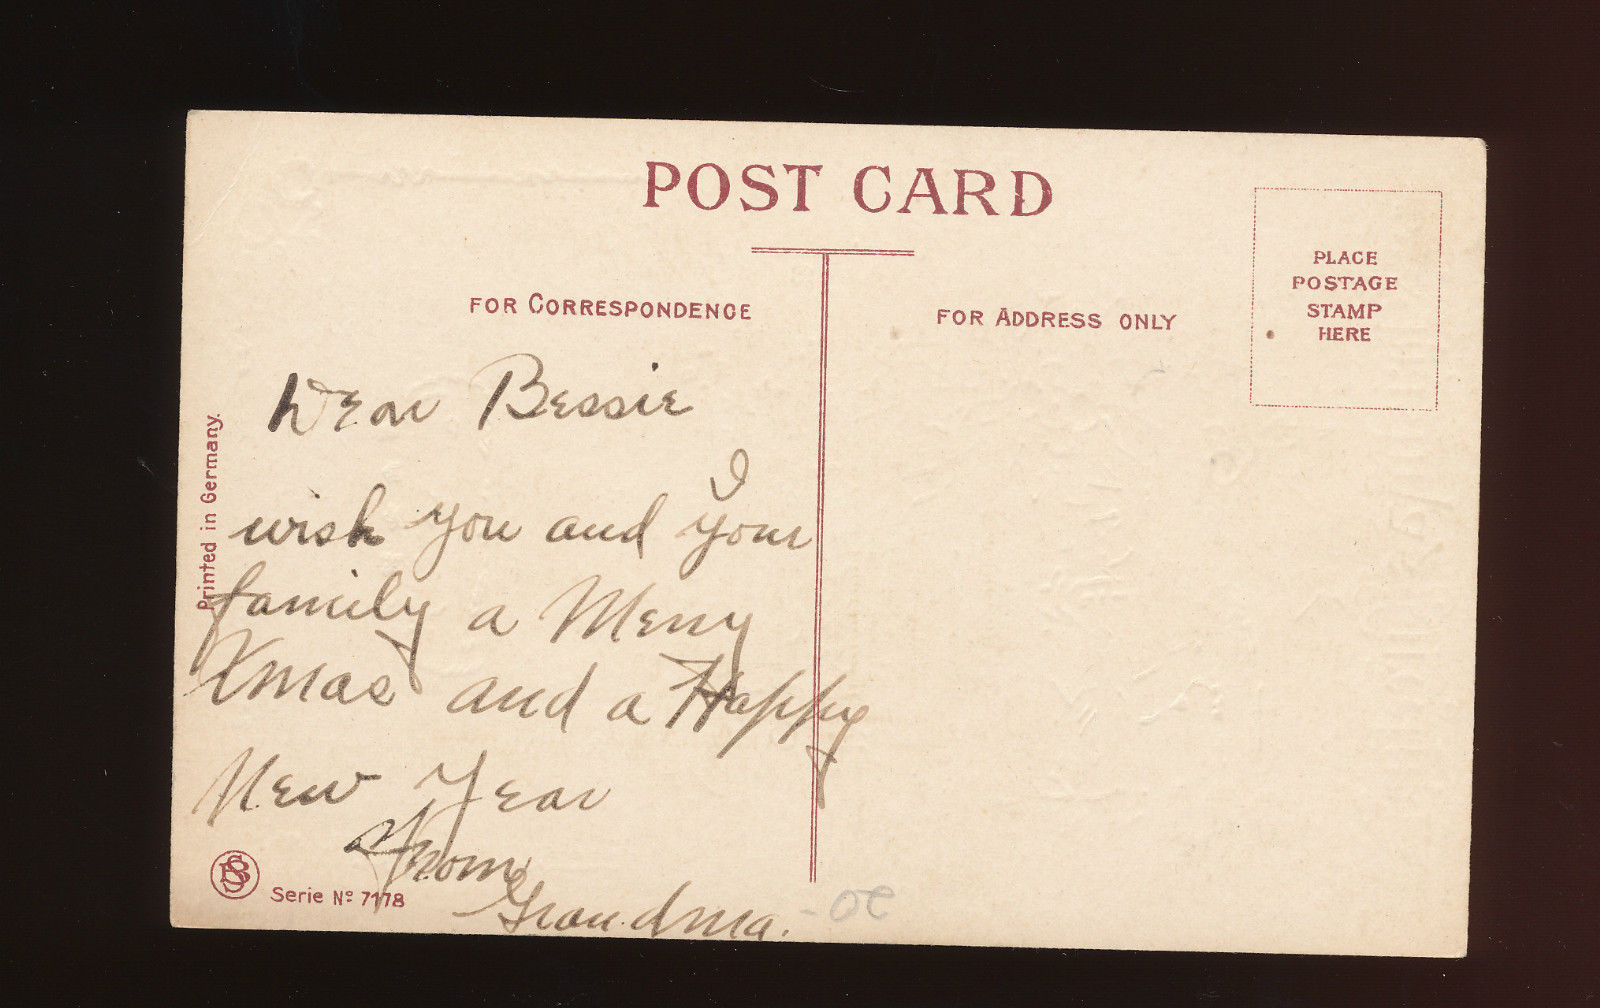 POST CARD
FOR CORRESPONDENCE
FOR ADDRESS ONLY
PLACE
POSTAGE
STAMP
HERE
Printed in Germany.
Dear Bessie
I
wish you and your
family a Merry
Xmas and a Happy
New Year
From
Grandma.
BS
Serie No 7178